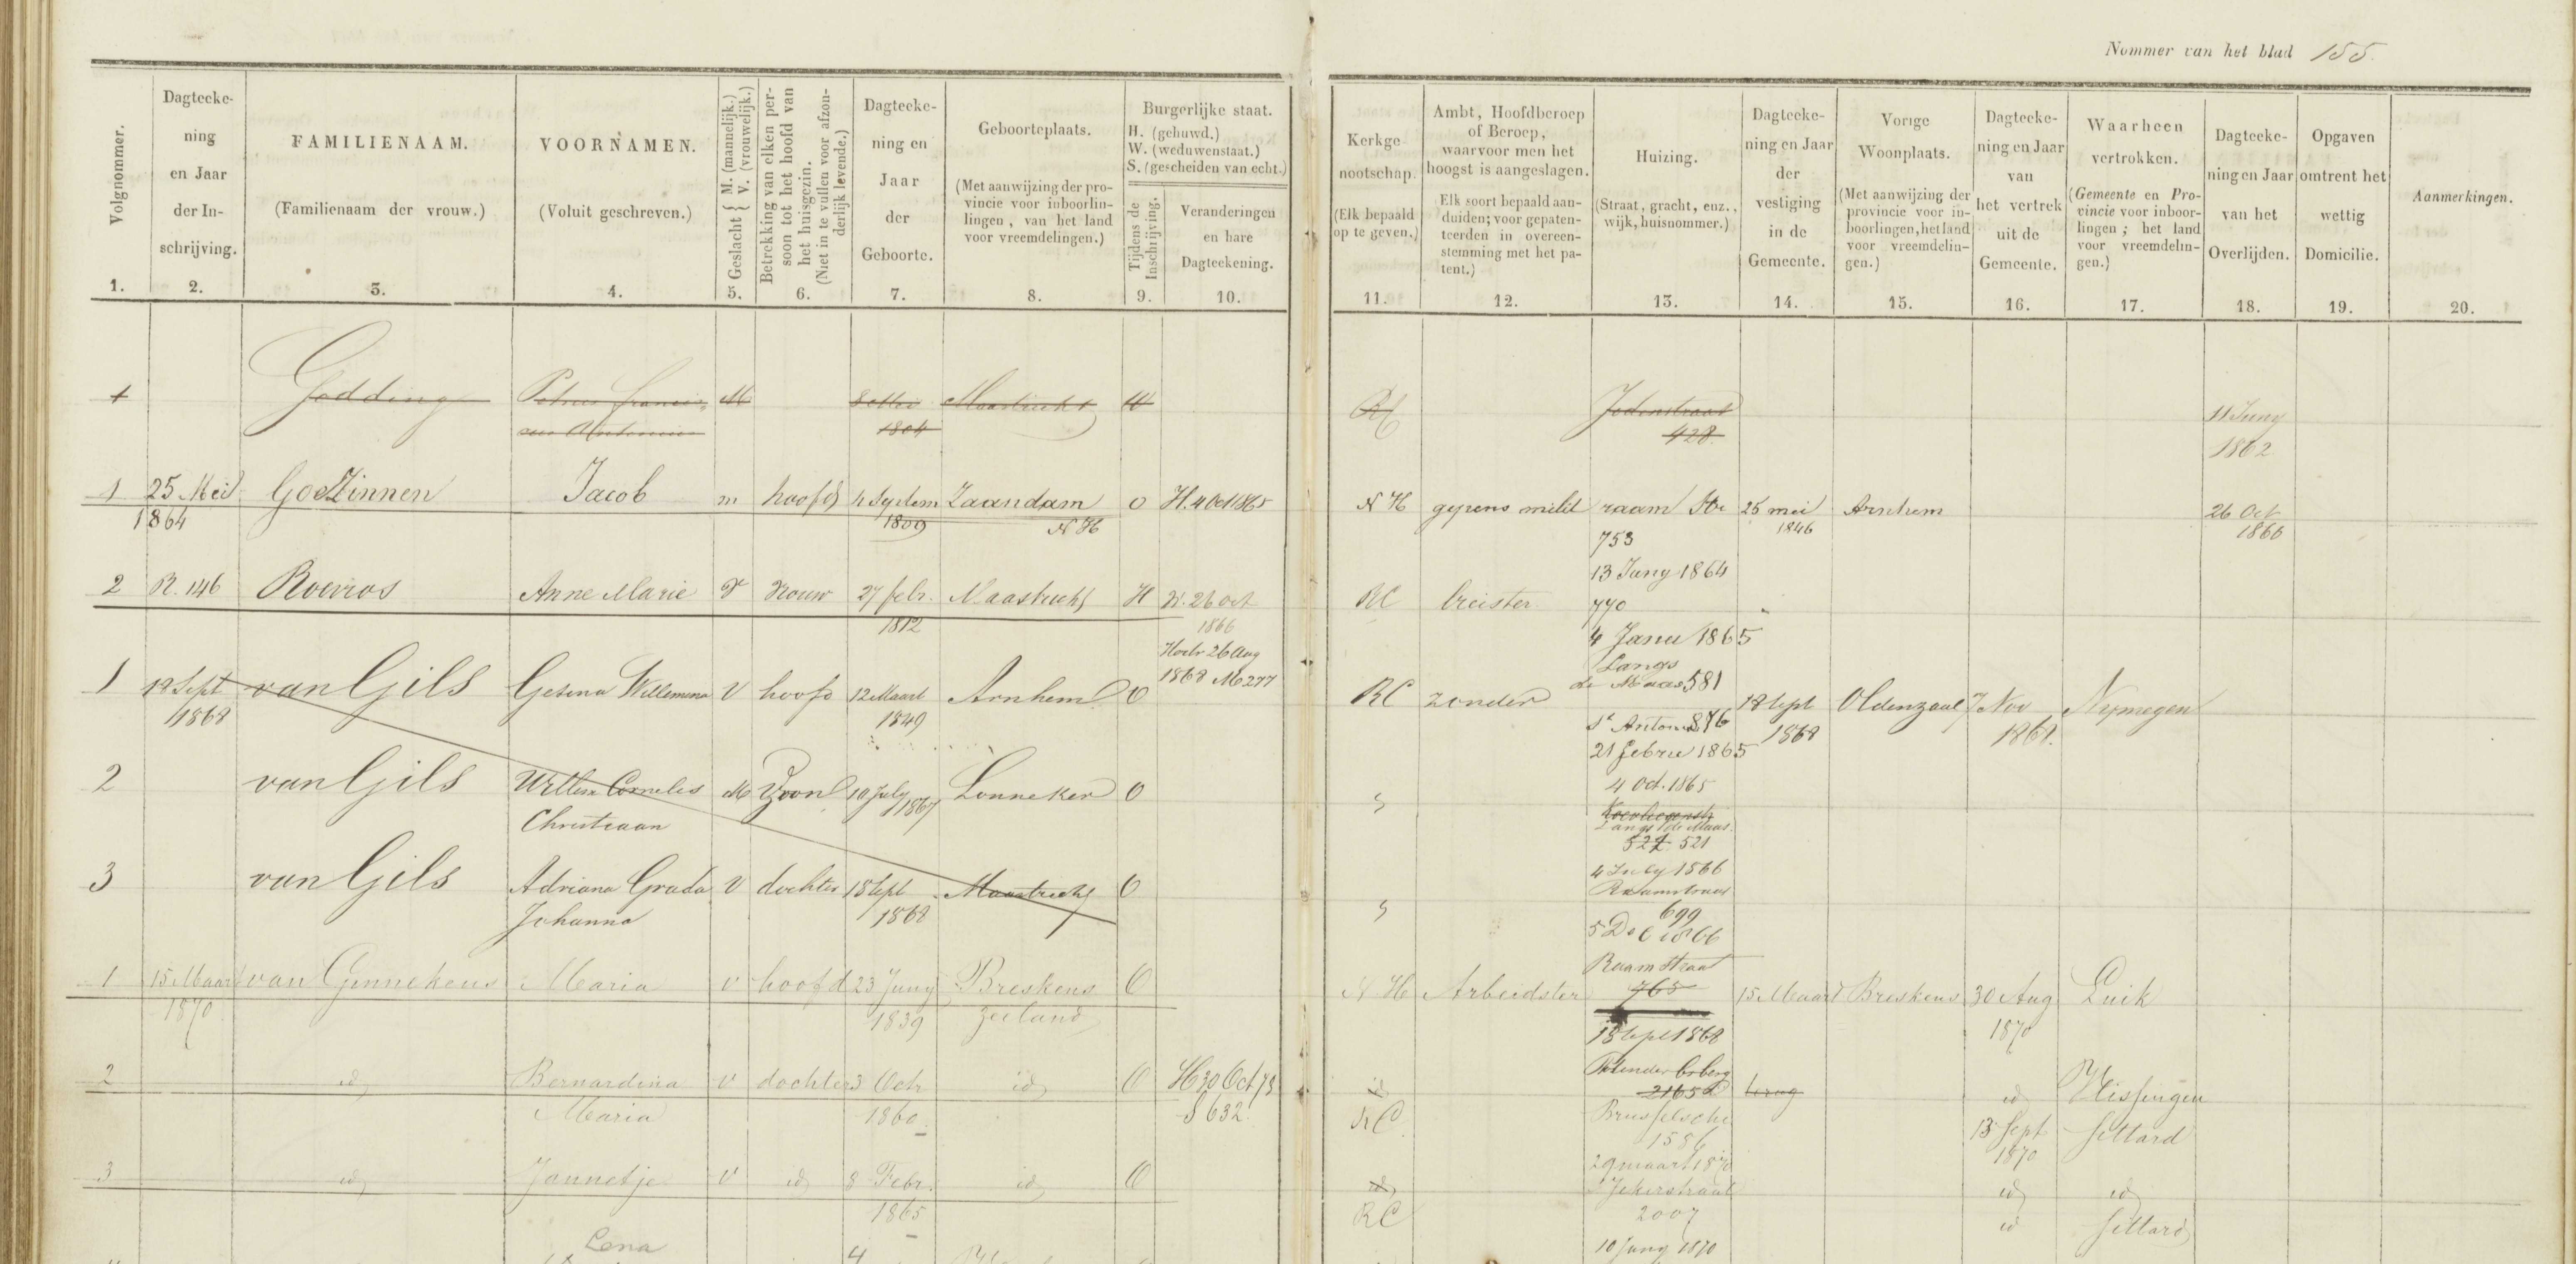 Nommer van het blad 155.
Volgnommer.
1.
Dagteeke-
ning
en Jaar
der In-
schrijving.
2.
FAMILIENAAM.
(Familienaam der vrouw.)
3.
VOORNAMEN.
(Voluit geschreven.)
4.
Geslacht { M. (mannelijk.) V. (vrouwelijk.)
5.
Betrekking van elken per-
soon tot het hoofd van
het huisgezin.
(Niet in te vullen voor afzon-
derlijk levende.)
6.
Dagteeke-
ning en
Jaar
der
Geboorte.
7.
Geboorteplaats.
(Met aanwijzing der pro-
vincie voor inboorlin-
lingen, van het land
voor vreemdelingen.)
8.
Burgerlijke staat.
H. (gehuwd.)
W. (weduwenstaat.)
S. (gescheiden van echt.)
Tijdens de
Inschrijving.
9.
Veranderingen
en hare
Dagteekening.
10.
Kerkge
nootschap.
(Elk bepaald
op te geven.)
11.
Ambt, Hoofdberoep
of Beroep,
waarvoor men het
hoogst is aangeslagen.
Elk soort bepaald aan-
duiden; voor gepaten-
teerden in overeen-
stemming met het pa-
tent.)
12.
Huizing.
(Straat, gracht, enz.,
wijk, huisnommer.)
13.
Dagteeke-
ning en Jaar
der
vestiging
in de
Gemeente.
14.
Vorige
Woonplaats.
(Met aanwijzing der
provincie voor in-
boorlingen, het land
voor vreemdelin-
gen.)
15.
Dagteeke-
ning en Jaar
van
het vertrek
uit de
Gemeente.
16.
Waarheen
vertrokken.
(Gemeente en Pro-
vincie voor inboor-
lingen; het land
voor vreemdelin-
gen.)
17.
Dagteeke-
ning en Jaar
van het
Overlijden.
18.
Opgaven
omtrent het
wettig
Domicilie.
19.
Aanmerkingen.
20.
1 Godding Petrus Francis- M 8 Mei Maastricht W RC Jodenstraat 11 Juny
cus Antonius 1804 428 1862
1 25 Mei Goezinnen Jacob m hoofd Zaandam O H. 4 Oct 1865 NH gepens milit raam Str 25 mei Arnhem 26 Oct
1864 1809 NH 753 1846 1866
13 Juny 1864
2 R. 146 Anne Marie V vrouw 27 febr. Maastricht H W. 26 oct RC breister 770
1812 1866 4 Janu 1865
26 Aug Langs
1868 277 de Maas 581
1 18 Sept van Gils Gesina Willemina V hoofd 12 Maart Arnhem O RC zonder 18 Sept Oldenzaal 7 Nov Nymegen
1868 1849 St Anton 876 1868 1868.
21 Febru 1865
2 van Gils Willem Cornelis M Zoon 10 July 1867 Lonneker O 4 Oct. 1865
Christiaan Langs de Maas
522 521
3 van Gils Adriana Grada V dochter 18 Sept Maastricht O 4 July 1866
Johanna 1868 Raamstraat
699
5 Dec 1866
1 15 Maart van Gennekens Maria v hoofd 23 Juny Breskens O NH Arbeidster Raamstraat 765 15 Maart Breskens 30 Aug Luik
1870 1839 Zeeland 18 Sept 1868 1870
2 id Bernardina v dochter 3 Octr id O H 30 Oct 73 id 2165 terug id Vlissingen
Maria 1860 S 632. RC Brusselsche 13 Sept Sittard
1586 1870
29 maart 1870
3 id Jannetje v id 8 Febr. id O id Jekerstraat id id
1865 RC 2007 id Sittard
Lena 10 Juny 1870
4